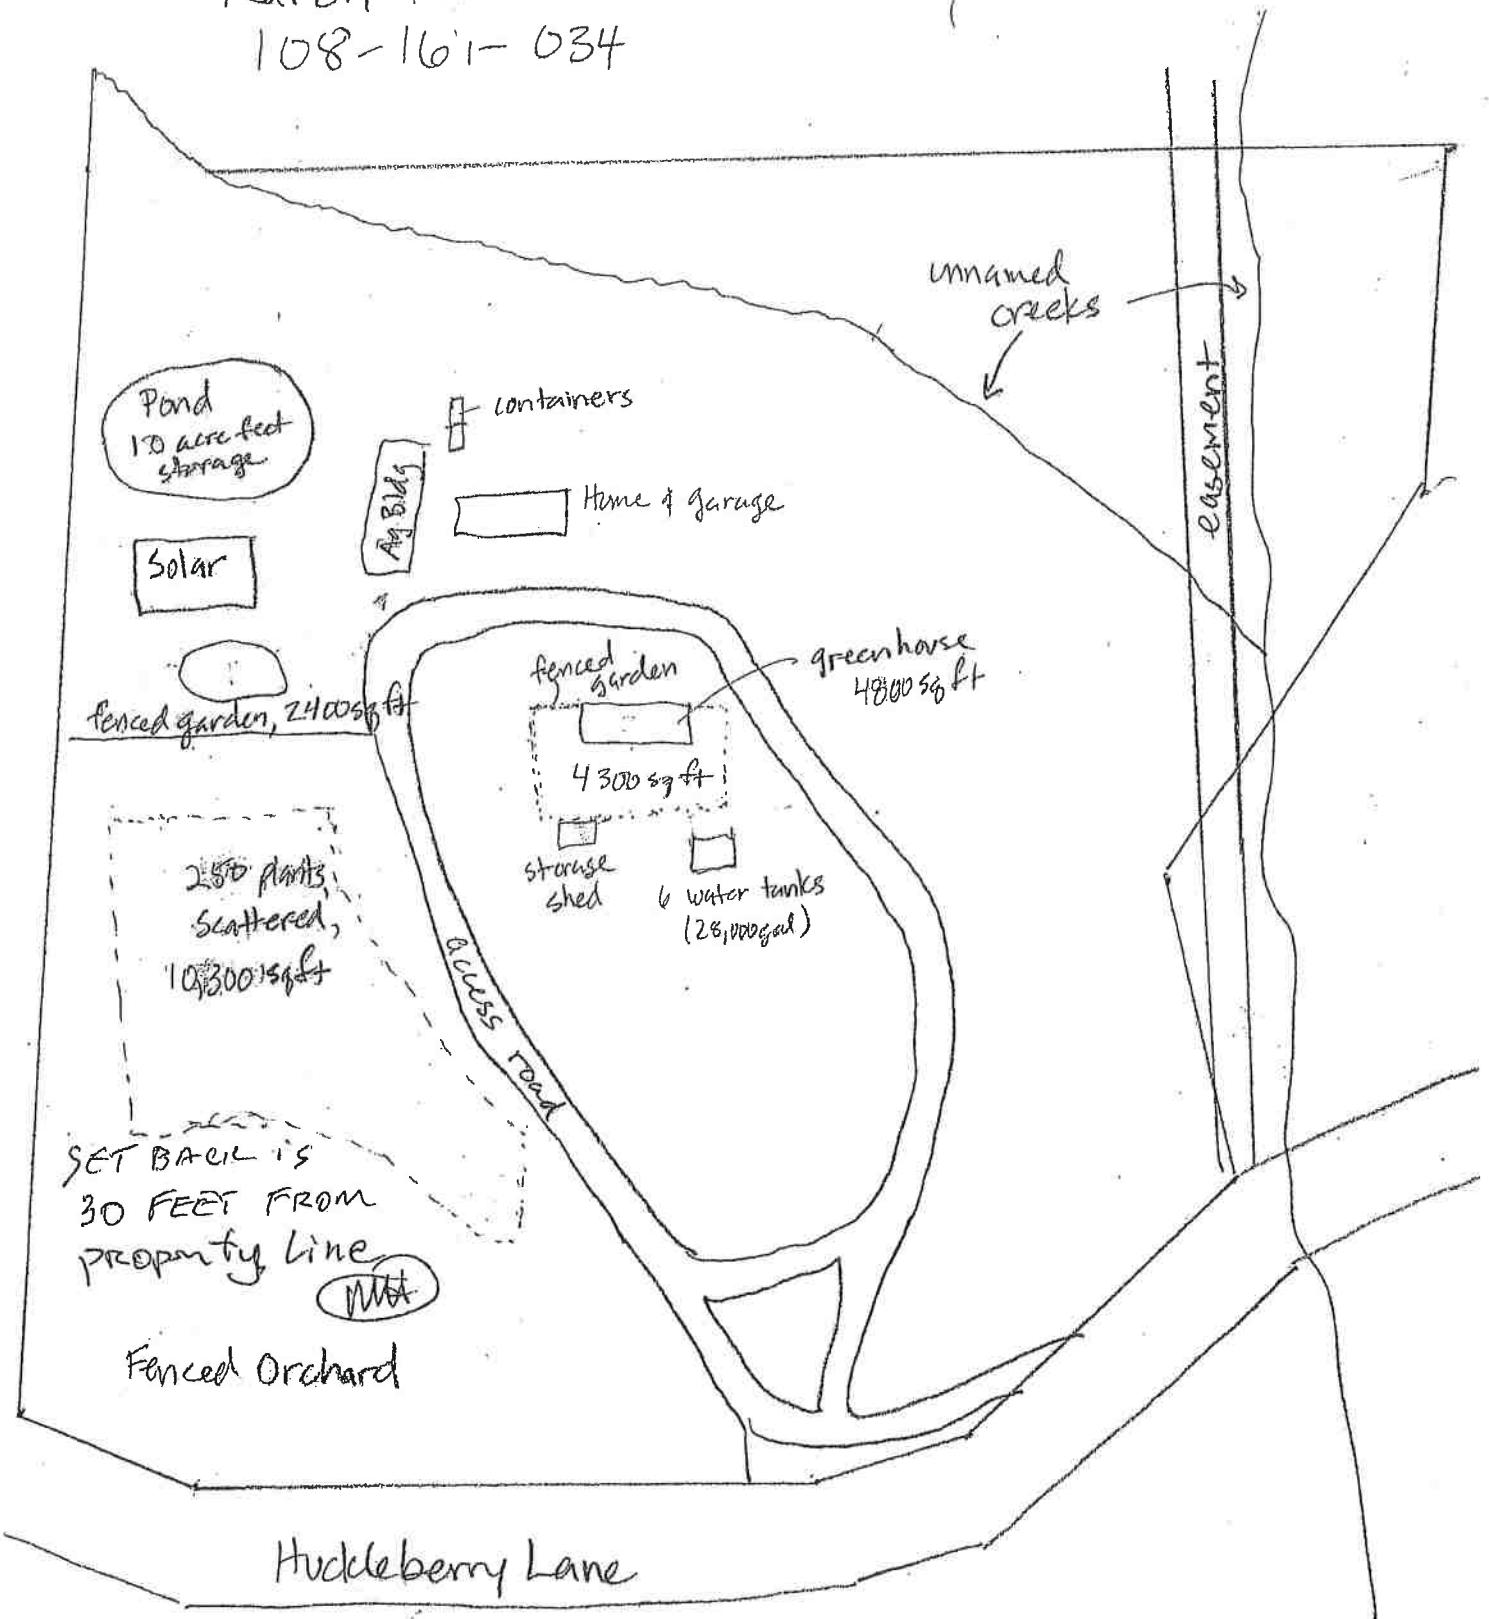 108-161-034
unnamed
creeks
easement
Pond
1.0 acre feet
storage
containers
Ag Bldg
Home & garage
Solar
fenced
garden
greenhouse
4800 sq ft
fenced garden, 2400 sq ft
4300 sq ft
storage
shed
6 water tanks
(28,000 gal)
250 plants,
scattered,
10,300 sq ft
access road
SET BACK is
30 FEET FROM
property Line
Fenced Orchard
Huckleberry Lane